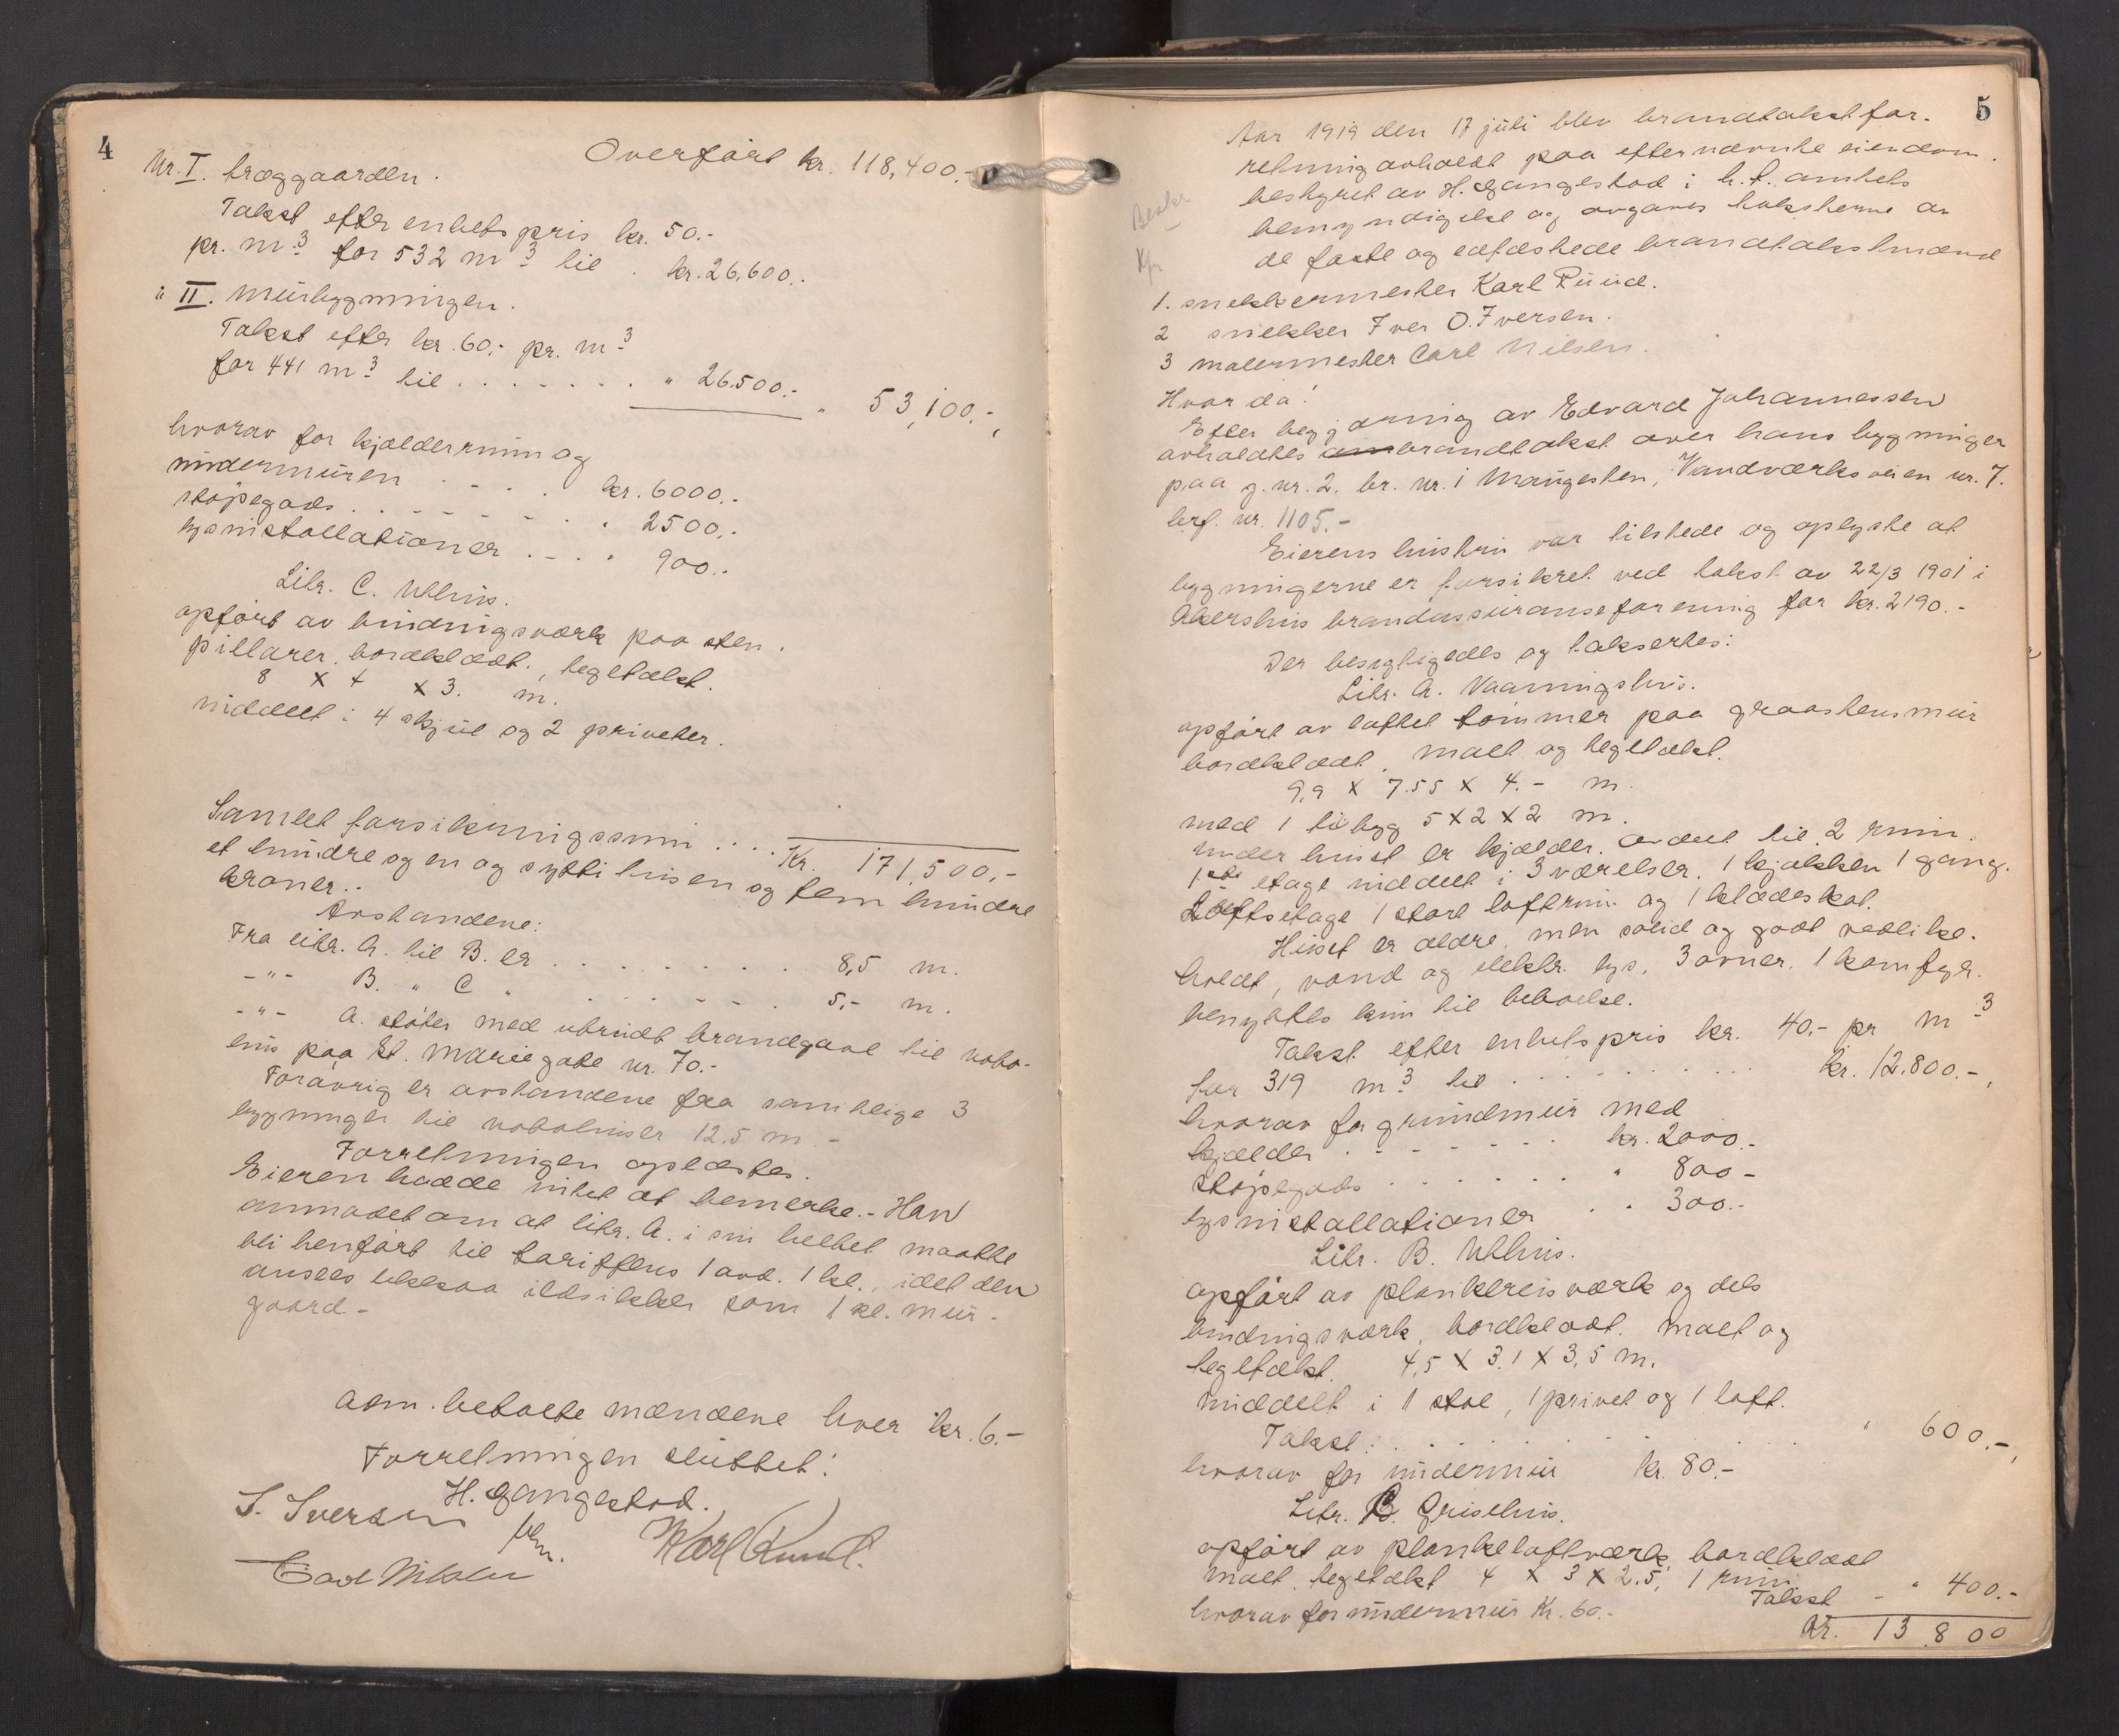 4
Overført kr. 118,400.-
Nr. I. træggaarden.
Takst efter enhetspris kr. 50.-
pr. m³ for 532 m³ til . kr. 26,600.-
" II. Murbygningen.
Takst efter kr. 60,- pr. m³
for 441 m³ til . . . . . . . " 26.500.- " 53,100.-,
hvorav for kjælderrum og
undermuren . . . . kr. 6000.-
støpegods . . . . . . . " 2500,-
lysinstallationer . . . " 900.-
Litr. C. Uthus.
opført av bindingsværk paa sten.
pillarer. bordklædt, tegltækt.
8 x 4 x 3. m.
inddelt i 4 skjul og 2 priveter.
Samlet forsikringssum . . . . Kr. 171,500,-
et hundre og en og sytti tusen og fem hundre
kroner..
Avstandene:
Fra litr. A. til B. er . . . . . . . . 8,5 m.
-"- B. " C " . . . . . . . 5,- m.
-"- A. støter med ubrudt brandgavl til nabo-
hus paa St. Marie gate nr. 70.-
Forøvrig er avstandene fra samtlige 3
bygninger til nabohuser 12.5 m.-
Forretningen oplæstes.
Eieren hadde intet at bemerke.- Han
anmodet om at litr. A. i sin helhet maatte
bli henført til tariffens 1 avd. 1 kl., idet den
ansees likesaa ildsikker som 1 kl. mur-
gaard -
Adm. betalte mændene hver kr. 6.-
Forretningen sluttet!
H. Gangestad.
I. Iversen
Karl Ruud.
Carl Nilsen
5
Aar 1919 den 17 juli blev brandtakstfor-
retning avholdt paa efternævnte eiendom.
bestyret av H. Gangestad i h.t. amtets
bemyndigelse og avgaves taksterne av
de faste og edfæstede brandtakstmænd
1. snekkermester Karl Ruud.
2 snekker Iver O. Iversen.
3 malermester Carl Nilsen.
Hvor da!
Efter begjæring av Edvard Johannessen
avholdtes brandtakst over hans bygninger
paa g. nr. 2, br. nr. 1 Mangesten, Vandværksveien nr. 7.
brf. nr. 1105.-
Eierens hustru var tilstede og oplyste at
bygningerne er forsikret ved takst av 22/3 1901 i
Akershus brandassuranseforening for kr. 2190.-
Der besigtigedes og taksertes:
Litr. A. Vaaningshus.
opført av laftet tømmer paa graastensmur
bordklædt, malt og tegltækt.
9,9 x 7.55 x 4.- m.
med 1 tilbyg 5 x 2 x 2 m.
under huset er kjælder. avdelt til 2 rum.
1ste etage inddelt i 3 værelser. 1 kjøkken 1 gang.
Loftsetage 1 stort loftrum og 1 klædeskot.
Huset er ældre, men solid og godt vedlike-
holdt, vand og elektr. lys, 3 ovner. 1 komfyr.
benyttes kun til beboelse.
Takst efter enhetspris kr. 40,- pr m³
for 319 m³ til . . . . . . . . . . kr. 12.800.-,
hvorav for grundmur med
kjælder . . . . . . kr. 2000.-
støpegods . . . . . . " 800 -
lysinstallationer . . 300.-
Litr. B. Uthus.
opført av plankereisværk og dels
bindingsværk, bordklædt. malt og
tegltækt. 4,5 x 3.1 x 3,5 m.
inddelt i 1 stal, 1 privet og 1 loft.
Takst: . . . . . . . . . . . . . " 600.-,
hvorav for undermur kr. 80.-
Litr. C. Grisehus.
opført av plankelaftværk, bordklædt
malt. tegltækt 4 x 3 x 2.5, 1 rum.
Takst - " 400.-
hvorav for undermur Kr. 60.-
Kr. 13.800